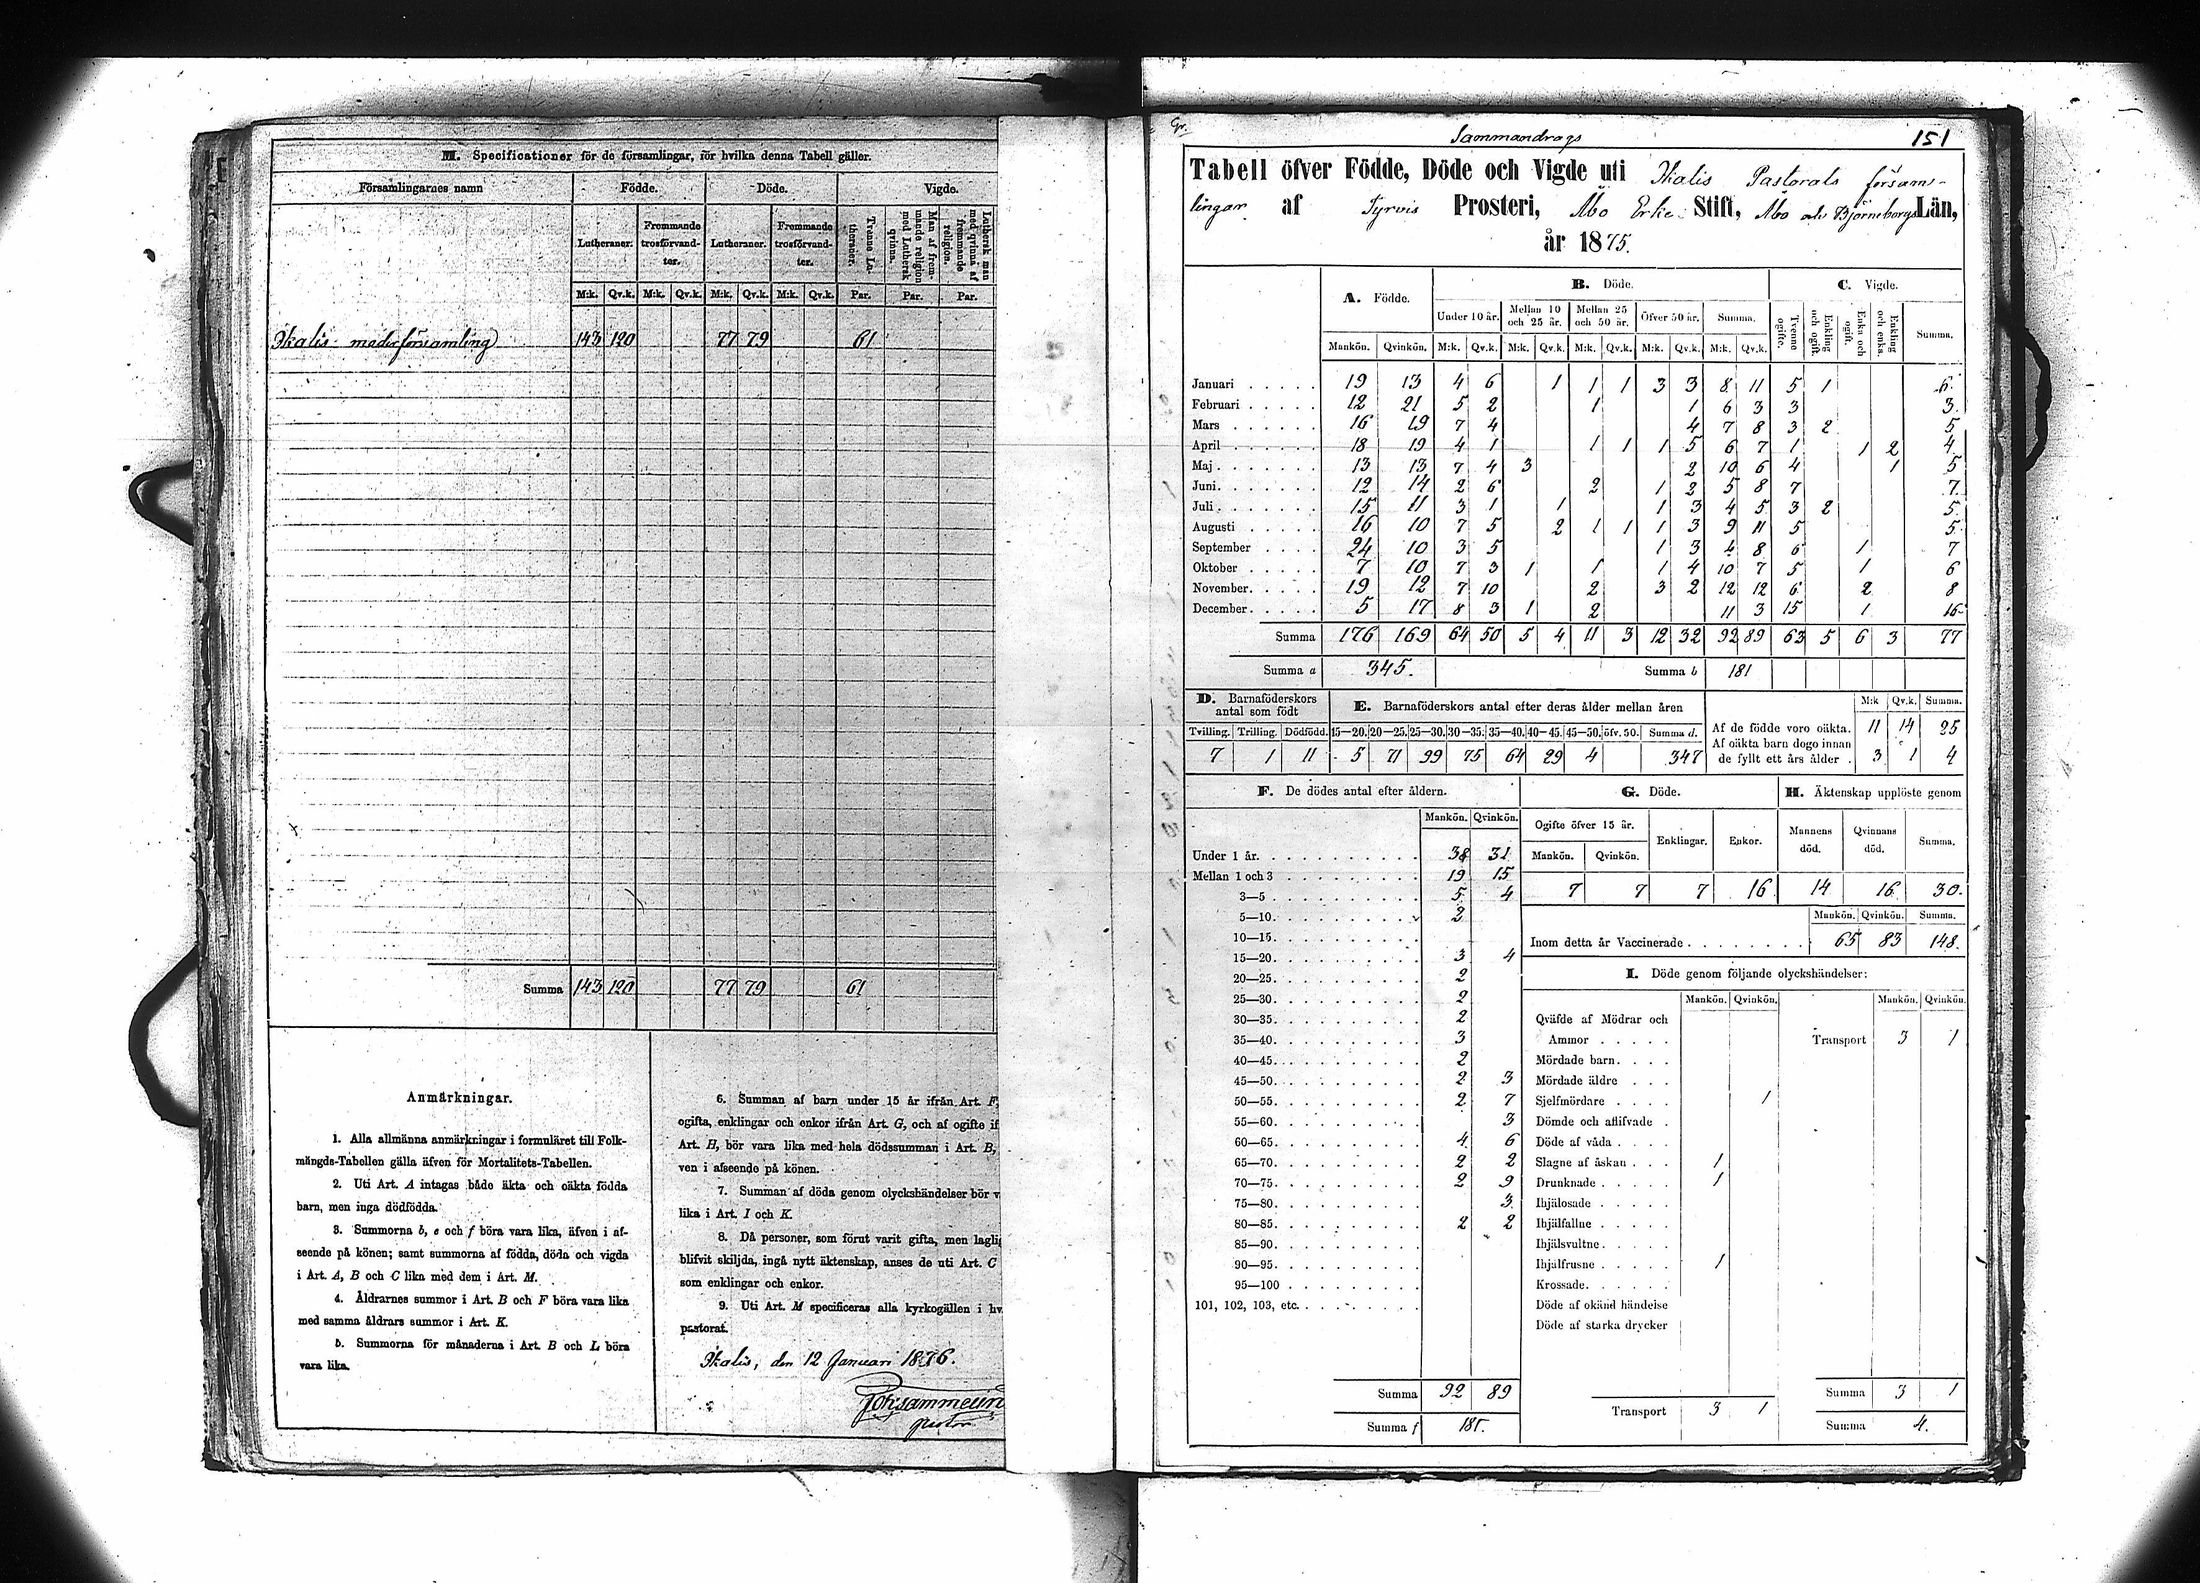 M. Specificationer för de församlingar, för hvilka denna Tabell gäller.
Församlingarnes namn Födde. Döde. Vigde.
Lutheraner. Fremmande trosförvandter. Lutheraner. Fremmande trosförvandter. Tvenne Lutheraner. Man af fremmande religion med Luthersk qvinna. Luthersk man med qvinna af fremmande religion.
M:k. Qv.k. M:k. Qv.k. M:k. Qv.k. M:k. Qv.k. Par. Par. Par.
Ikalis moderförsamling 143 120 77 79 61
Summa 143 120 77 79 61
Anmärkningar.
1. Alla allmänna anmärkningar i formuläret till Folk-
mängds-Tabellen gälla äfven för Mortalitets-Tabellen.
2. Uti Art. A intagas både äkta och oäkta födda
barn, men inga dödfödda.
3. Summorna b, e och f böra vara lika, äfven i af-
seende på könen; samt summorna af födda, döda och vigda
i Art. A, B och C lika med dem i Art. M.
4. Åldrarnes summor i Art. B och F böra vara lika
med samma åldrars summor i Art. K.
5. Summorna för månaderna i Art. B och L böra
vara lika.
6. Summan af barn under 15 år ifrån Art. F,
ogifta, enklingar och enkor ifrån Art. G, och af ogifte if
Art. H, bör vara lika med hela dödssumman i Art. B,
ven i afseende på könen.
7. Summan af döda genom olyckshändelser bör v
lika i Art. I och K.
8. Då personer, som förut varit gifta, men laglig
blifvit skiljda, ingå nytt äktenskap, anses de uti Art. C
som enklingar och enkor.
9. Uti Art. M specificeras alla kyrkogällen i hv
pastorat.
Ikalis, den 12 Januari 1876.
Joh. Sammelin
pastor
Sammandrags
151
Tabell öfver Födde, Döde och Vigde uti Ikalis Pastorats försam-
lingar af Tyrvis Prosteri, Åbo Erke Stift, Åbo och Björneborgs Län,
år 1875.
A. Födde. B. Döde. C. Vigde.
Under 10 år. Mellan 10 och 25 år. Mellan 25 och 50 år. Öfver 50 år. Summa. Tvenne ogifte. Enkling och ogift. Enka och ogift. Enkling och enka. Summa.
Mankön. Qvinkön. M:k. Qv.k. M:k. Qv.k. M:k. Qv.k. M:k. Qv.k. M:k. Qv.k.
Januari 19 13 4 6 1 1 1 3 3 8 11 5 1 6
Februari 12 21 5 2 1 1 6 3 3 3
Mars 16 19 7 4 4 7 8 3 2 5
April 18 19 4 1 1 1 1 5 6 7 1 1 2 4
Maj 13 13 7 4 3 2 10 6 4 1 5
Juni 12 14 2 6 2 1 2 5 8 7 7
Juli 15 11 3 1 1 1 3 4 5 3 2 5
Augusti 16 10 7 5 2 1 1 1 3 9 11 5 5
September 24 10 3 5 1 3 4 8 6 1 7
Oktober 7 10 7 3 1 1 1 4 10 7 5 1 6
November 19 12 7 10 2 3 2 12 12 6 2 8
December 5 17 8 3 1 2 11 3 15 1 16
Summa 176 169 64 50 5 4 11 3 12 32 92 89 63 5 6 3 77
Summa a 345. Summa b 181
D. Barnaföderskors antal som födt
Tvilling. Trilling. Dödfödd.
7 1 11
E. Barnaföderskors antal efter deras ålder mellan åren
15—20. 20—25. 25—30. 30—35. 35—40. 40—45. 45—50. öfv. 50. Summa d.
5 71 99 75 64 29 4 347
M:k Qv.k. Summa.
Af de födde voro oäkta. 11 14 25
Af oäkta barn dogo innan
de fyllt ett års ålder . 3 1 4
F. De dödes antal efter åldern.
Mankön. Qvinkön.
Under 1 år. 38 31
Mellan 1 och 3 19 15
3—5 5 4
5—10. 2
10—15.
15—20. 3 4
20—25. 2
25—30. 2
30—35. 2
35—40. 3
40—45. 2
45—50. 2 3
50—55. 2 7
55—60. 3
60—65. 4 6
65—70. 2 2
70—75. 2 9
75—80. 3
80—85. 2 2
85—90.
90—95.
95—100
101, 102, 103, etc.
Summa 92 89
Summa f 181.
G. Döde.
Ogifte öfver 15 år. Enklingar. Enkor.
Mankön. Qvinkön.
7 7 7 16
H. Äktenskap upplöste genom
Mannens död. Qvinnans död. Summa.
14 16 30.
Mankön. Qvinkön. Summa.
Inom detta år Vaccinerade 65 83 148.
I. Döde genom följande olyckshändelser:
Mankön. Qvinkön. Mankön. Qvinkön.
Qväfde af Mödrar och
Ammor Transport 3 1
Mördade barn
Mördade äldre
Sjelfmördare 1
Dömde och aflifvade
Döde af våda
Slagne af åskan 1
Drunknade 1
Ihjälosade
Ihjälfallne
Ihjälsvultne
Ihjälfrusne 1
Krossade
Döde af okänd händelse
Döde af starka drycker
Transport 3 1
Summa 3 1
Summa 4.